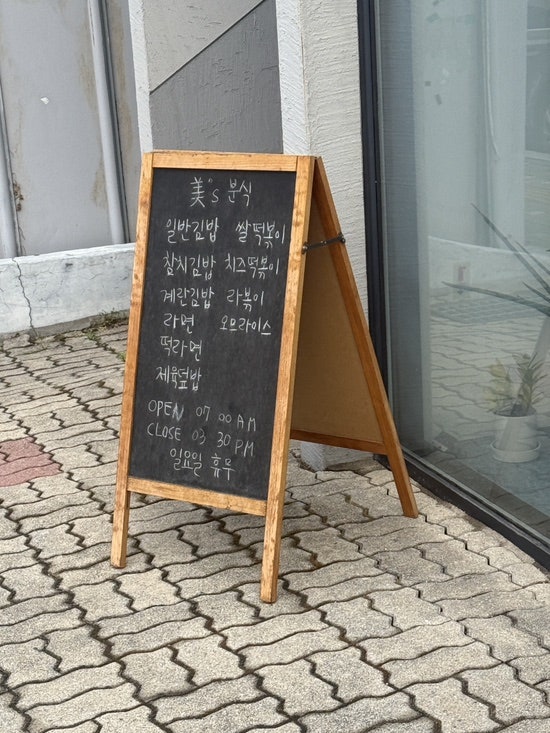 美's 분식
일반김밥 쌀떡볶이
참치김밥 치즈떡볶이
계란김밥 라볶이
라면 오므라이스
떡라면
제육덮밥
OPEN 07 00 AM
CLOSE 03 30 PM
일요일 휴무